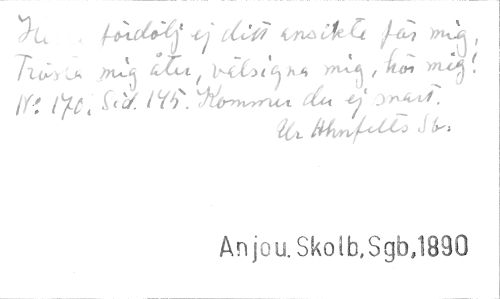 fördölj ej ditt ansikte för mig,
Trösta mig åter, välsigna mig, hör mig!
No 170. Sid. 145. Kommer du ej snart.
Ur Ahnfelts Sb.
Anjou. Skolb, Sgb, 1890